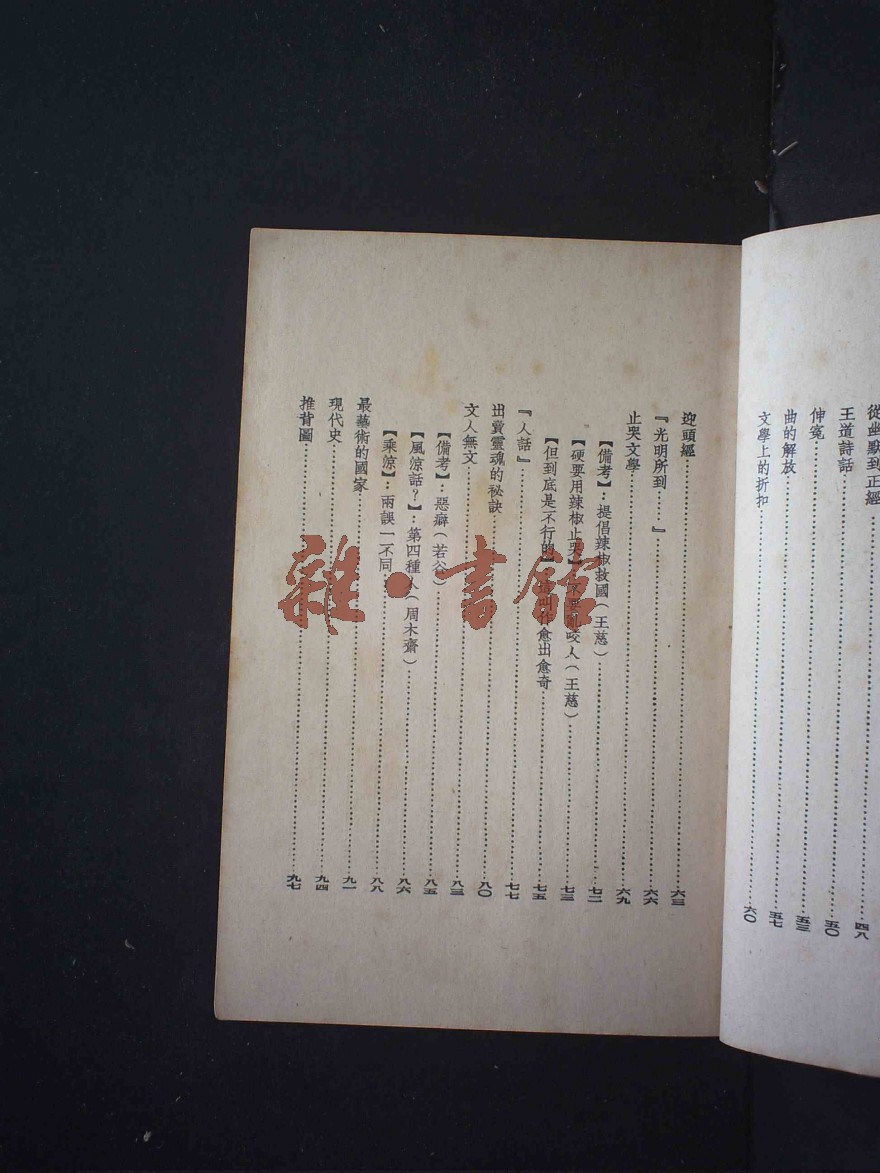 從幽默到正經……四八
王道詩話……五〇
伸冤……五三
曲的解放……五七
文學上的折扣……六〇
迎頭經……六三
『光明所到……』……六六
止哭文學……六九
【備考】：提倡辣椒救國（王慈）……七二
【硬要用辣椒止哭】不要亂咬人（王慈）……七三
【但到底是不行的】這叫作愈出愈奇……七五
『人話』……七七
出賣靈魂的秘訣……八〇
文人無文……八三
【備考】：惡癖（若谷）……八五
【風涼話？】：第四種人（周木齋）……八六
【乘涼】：兩誤一不同……八八
最藝術的國家……九一
現代史……九四
推背圖……九七
雜·書館